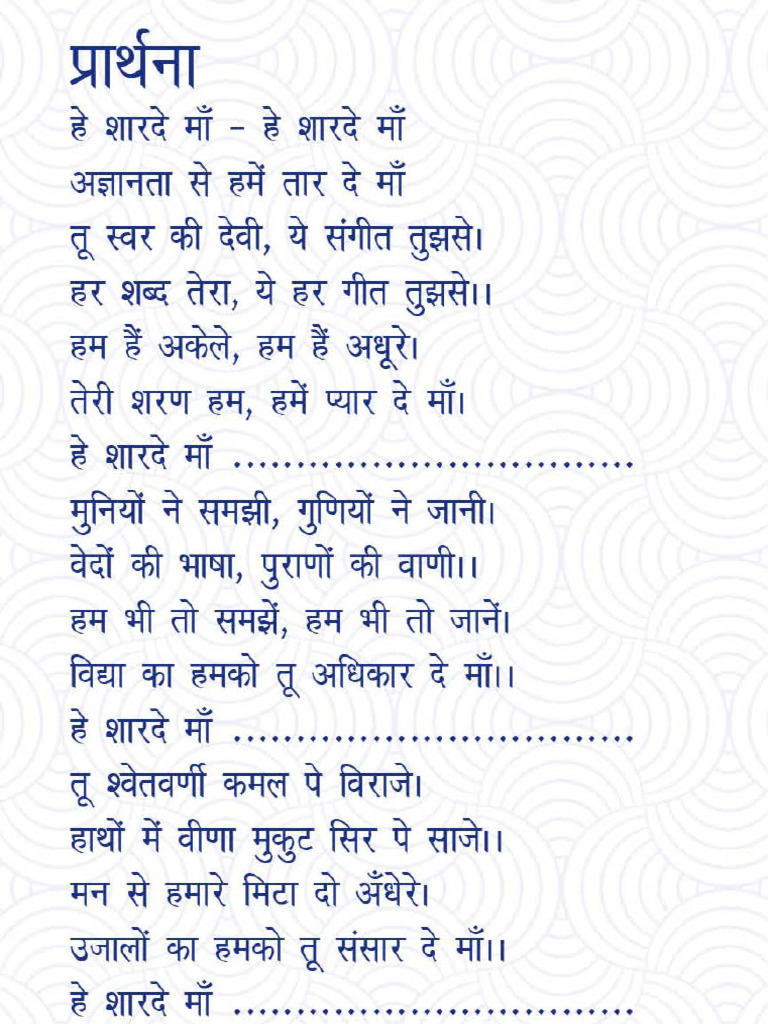 प्रार्थना
हे शारदे माँ – हे शारदे माँ
अज्ञानता से हमें तार दे माँ
तू स्वर की देवी, ये संगीत तुझसे।
हर शब्द तेरा, ये हर गीत तुझसे।।
हम हैं अकेले, हम हैं अधूरे।
तेरी शरण हम, हमें प्यार दे माँ।
हे शारदे माँ ................................
मुनियों ने समझी, गुणियों ने जानी।
वेदों की भाषा, पुराणों की वाणी।।
हम भी तो समझें, हम भी तो जानें।
विद्या का हमको तू अधिकार दे माँ।।
हे शारदे माँ ................................
तू श्वेतवर्णी कमल पे विराजे।
हाथों में वीणा मुकुट सिर पे साजे।।
मन से हमारे मिटा दो अँधेरे।
उजालों का हमको तू संसार दे माँ।।
हे शारदे माँ ................................